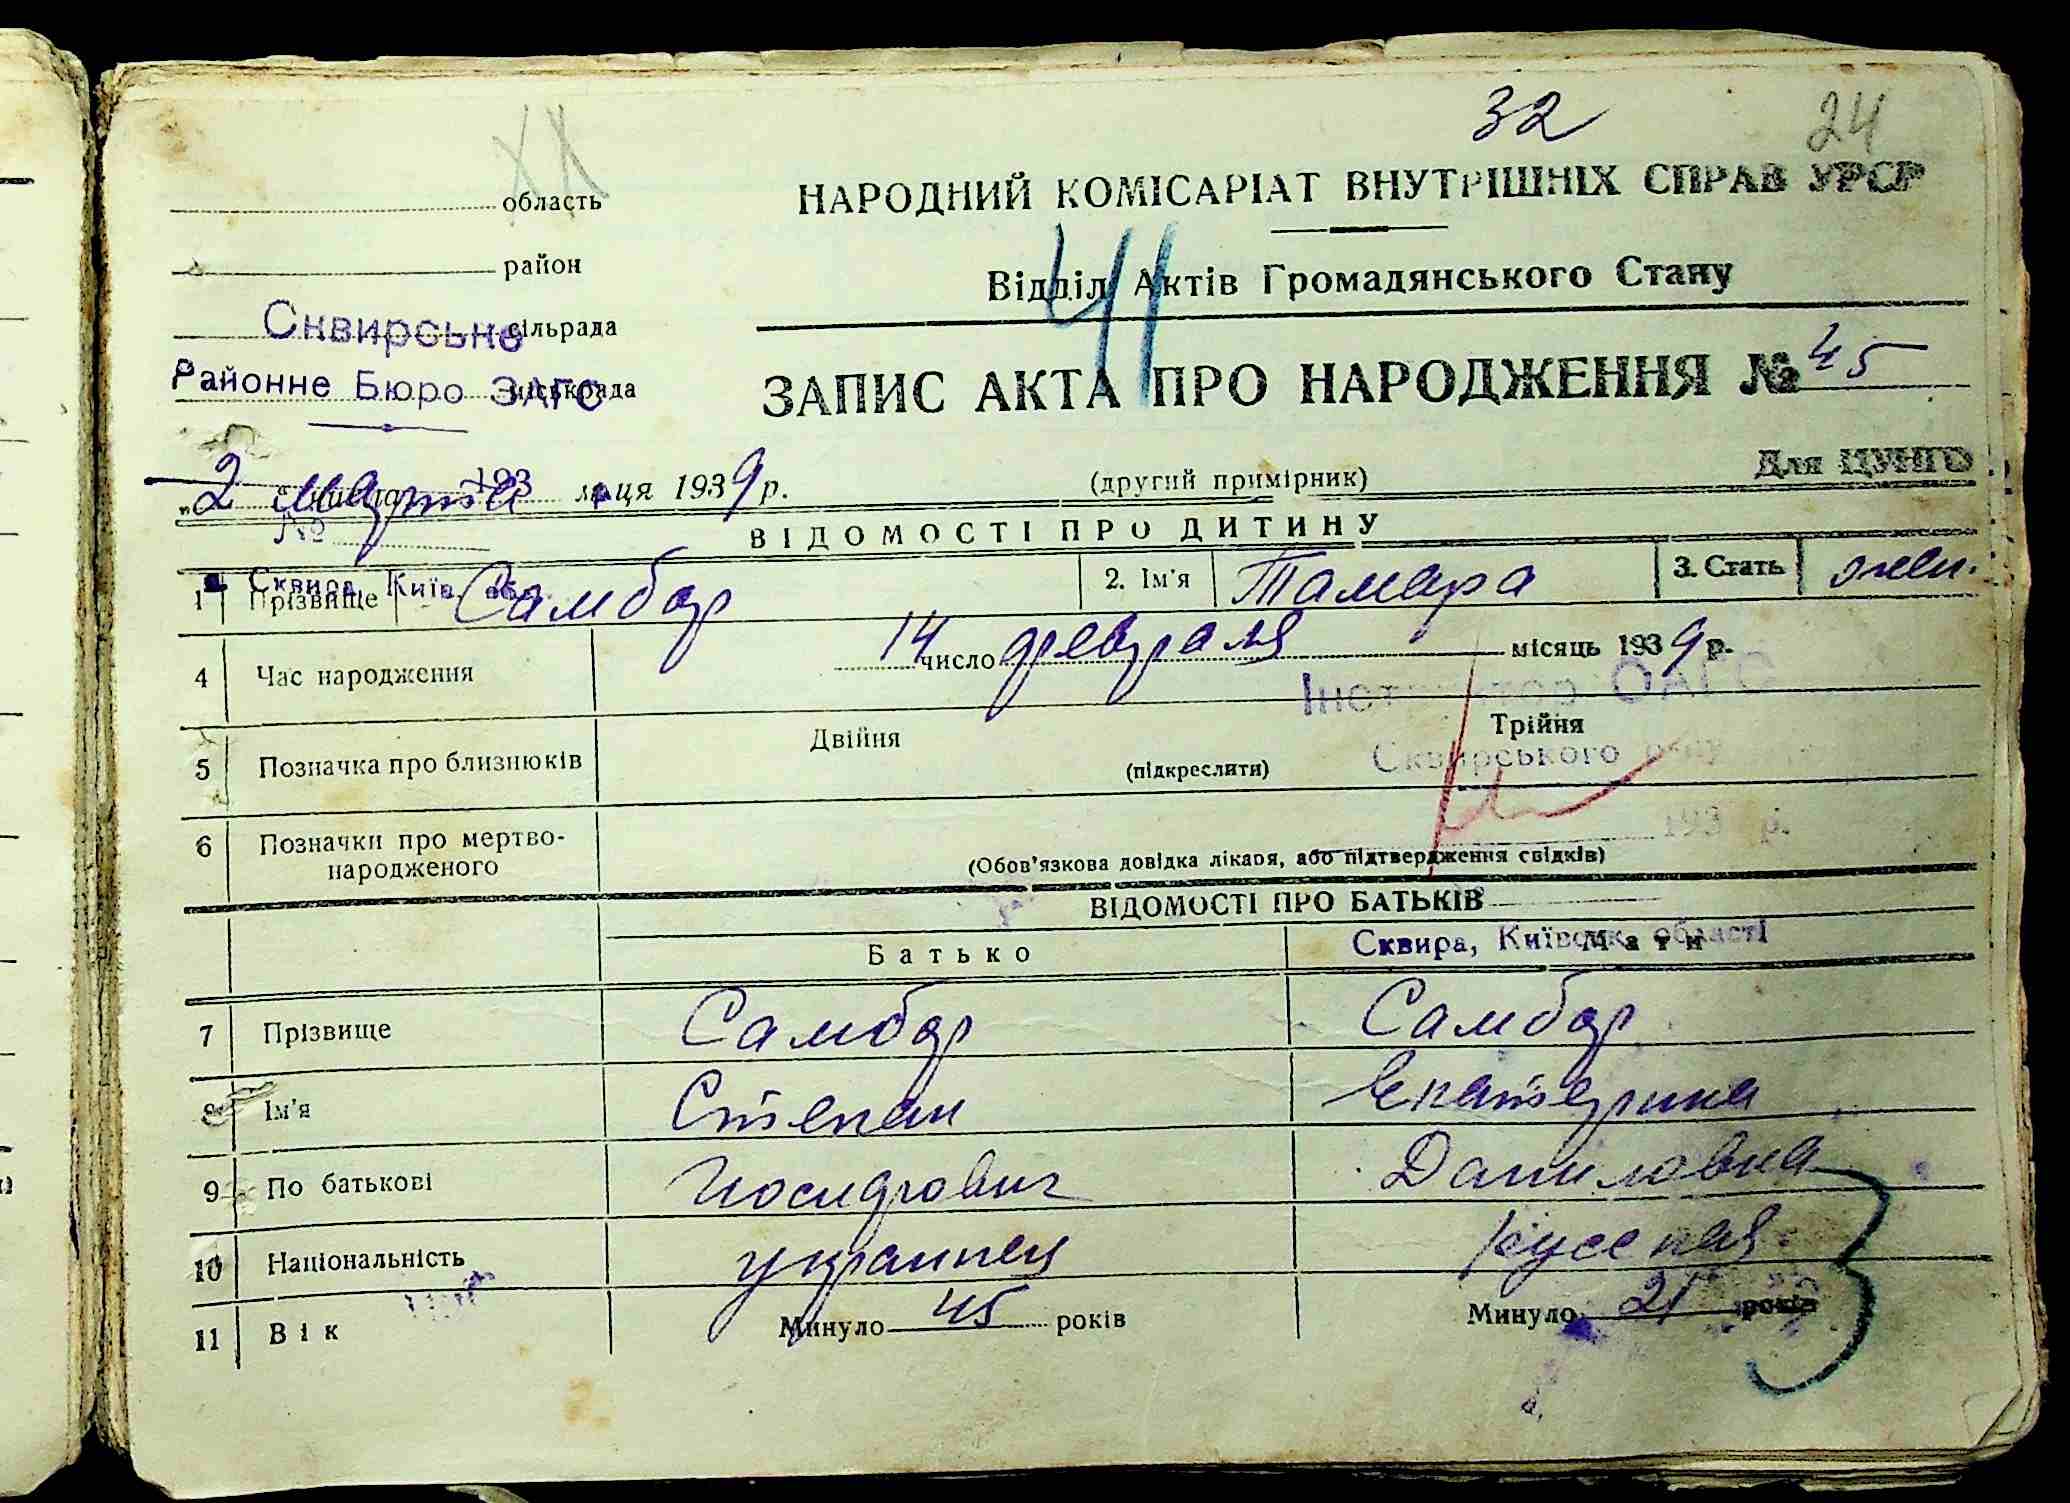 32 24
XX
область
НАРОДНИЙ КОМІСАРІАТ ВНУТРІШНІХ СПРАВ УРСР
район
Відділ Актів Громадянського Стану
41
Сквирське сільрада
Районне Бюро ЗАГС міськрада
ЗАПИС АКТА ПРО НАРОДЖЕННЯ № 45
Для ЦУНГО
„2 марта 193 м-ця 1939 р.
(другий примірник)
№
ВІДОМОСТІ ПРО ДИТИНУ
Сквира, Київ. обл.
1 Прізвище Самбор 2. Ім'я Тамара 3. Стать жен.
4 Час народження 14 число февраля місяць 1939 р.
Інспектор ОАГС
5 Позначка про близнюків Двійня (підкреслити) Трійня
Сквирського
193 р.
6 Позначки про мертво-
народженого
(Обов'язкова довідка лікаря, або підтвердження свідків)
ВІДОМОСТІ ПРО БАТЬКІВ
Сквира, Київськ. області
Батько Мати
7 Прізвище Самбор Самбор
8 Ім'я Степан Екатерина
9 По батькові Иосифович Даниловна
10 Національність украинец русская
11 Вік Минуло 45 років Минуло 21 років
3